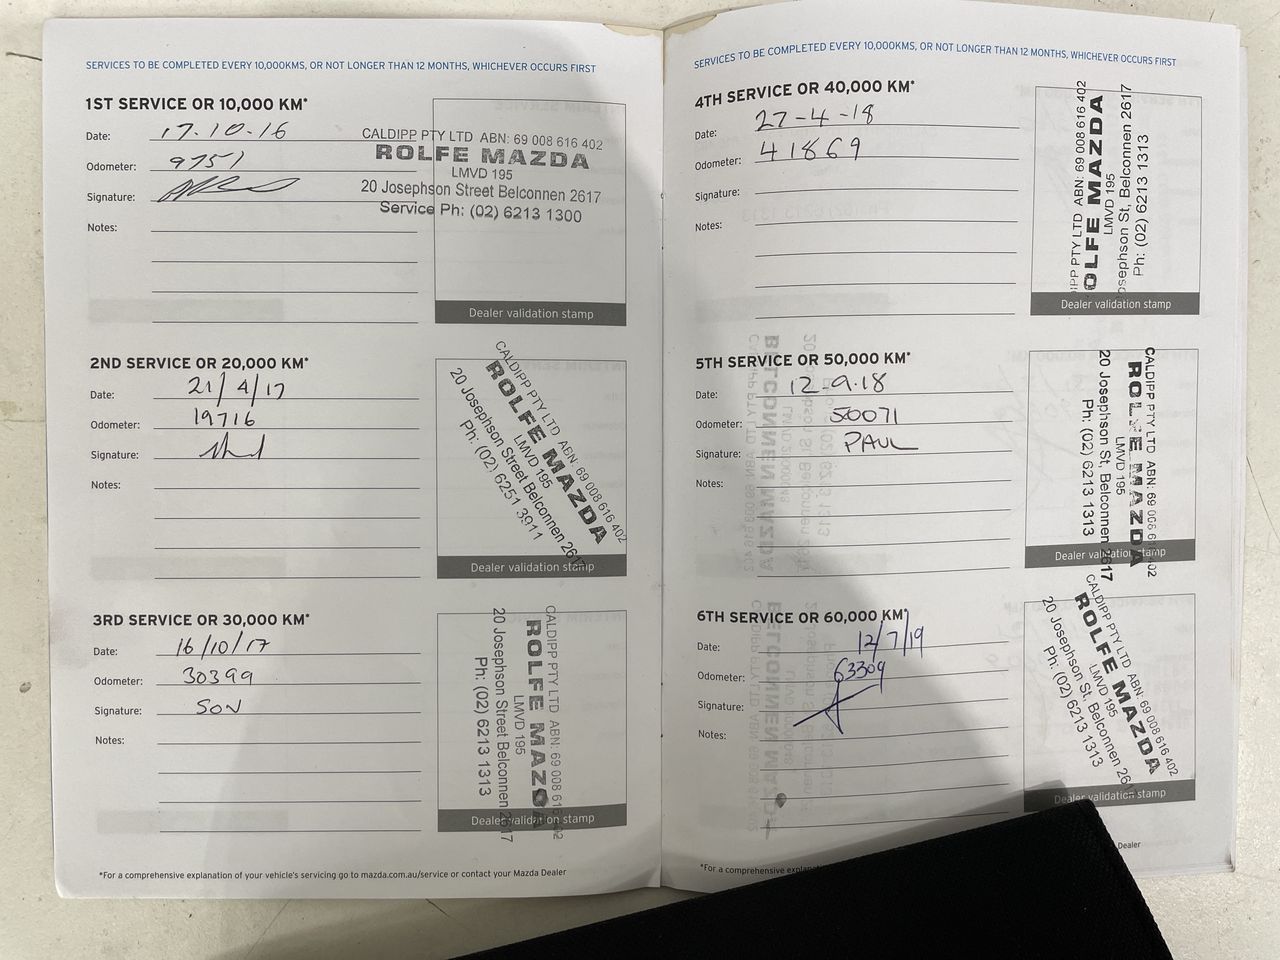 SERVICES TO BE COMPLETED EVERY 10,000KMS, OR NOT LONGER THAN 12 MONTHS, WHICHEVER OCCURS FIRST
1ST SERVICE OR 10,000 KM*
Date: 17.10.16
Odometer: 9751
Signature:
Notes:
CALDIPP PTY LTD ABN: 69 008 616 402
ROLFE MAZDA
LMVD 195
20 Josephson Street Belconnen 2617
Service Ph: (02) 6213 1300
Dealer validation stamp
2ND SERVICE OR 20,000 KM*
Date: 21/4/17
Odometer: 19716
Signature:
Notes:
CALDIPP PTY LTD ABN: 69 008 616 402
ROLFE MAZDA
LMVD 195
20 Josephson Street Belconnen 2617
Ph: (02) 6251 3911
Dealer validation stamp
3RD SERVICE OR 30,000 KM*
Date: 16/10/17
Odometer: 30399
Signature: SON
Notes:
CALDIPP PTY LTD ABN: 69 008 616 402
ROLFE MAZDA
LMVD 195
20 Josephson Street Belconnen 2617
Ph: (02) 6213 1313
Dealer validation stamp
*For a comprehensive explanation of your vehicle's servicing go to mazda.com.au/service or contact your Mazda Dealer
SERVICES TO BE COMPLETED EVERY 10,000KMS, OR NOT LONGER THAN 12 MONTHS, WHICHEVER OCCURS FIRST
4TH SERVICE OR 40,000 KM*
Date: 27-4-18
Odometer: 41869
Signature:
Notes:
IPP PTY LTD ABN: 69 008 616 402
OLFE MAZDA
LMVD 195
osephson St, Belconnen 2617
Ph: (02) 6213 1313
Dealer validation stamp
5TH SERVICE OR 50,000 KM*
Date: 12.9.18
Odometer: 50071
Signature: PAUL
Notes:
CALDIPP PTY LTD ABN: 69 008 616 402
ROLFE MAZDA
LMVD 195
20 Josephson St, Belconnen 2617
Ph: (02) 6213 1313
Dealer validation stamp
6TH SERVICE OR 60,000 KM*
Date: 12/7/19
Odometer: 63309
Signature:
Notes:
CALDIPP PTY LTD ABN: 69 008 616 402
ROLFE MAZDA
LMVD 195
20 Josephson St, Belconnen 261
Ph: (02) 6213 1313
Dealer validation stamp
*For a comprehensive Dealer